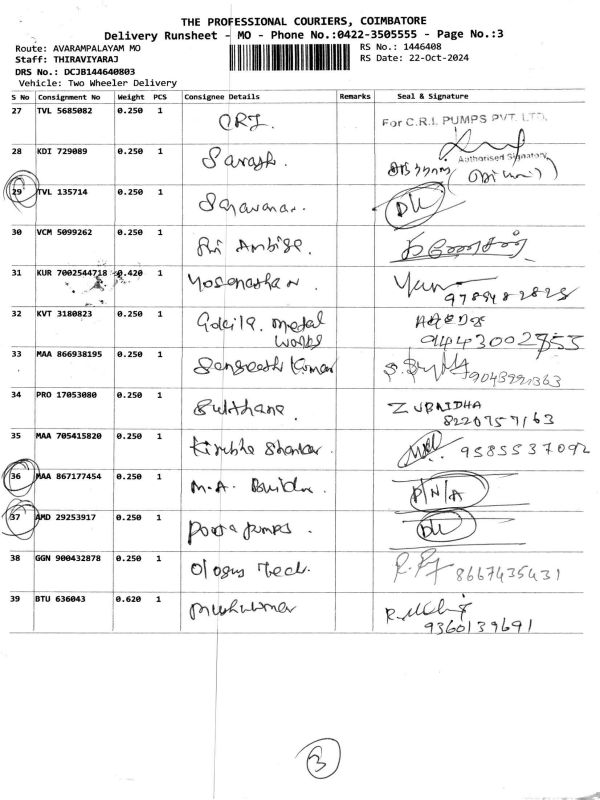 THE PROFESSIONAL COURIERS, COIMBATORE
Delivery Runsheet - MO - Phone No.:0422-3505555 - Page No.:3
Route: AVARAMPALAYAM MO RS No.: 1446408
Staff: THIRAVIYARAJ RS Date: 22-Oct-2024
DRS No.: DCJB144640803
Vehicle: Two Wheeler Delivery
S No Consignment No Weight PCS Consignee Details Remarks Seal & Signature
27 TVL 5685082 0.250 1 CRI For C.R.I. PUMPS PVT. LTD.
Authorised Signatory
28 KDI 729089 0.250 1
29 TVL 135714 0.250 1 Saravanan. DL
30 VCM 5099262 0.250 1 Sri Ambiga.
31 KUR 7002544718 0.420 1
32 KVT 3180823 0.250 1 metal
works
33 MAA 866938195 0.250 1 Sangeeth Kumar
34 PRO 17053080 0.250 1 Sulthana ZUBAIDHA
8220757163
35 MAA 705415820 0.250 1 9585537092
36 MAA 867177454 0.250 1 M.A. P/N/A
37 AMD 29253917 0.250 1 pumps. DL
38 GGN 900432878 0.250 1 Tech. 8667435431
39 BTU 636043 0.620 1 Muthukumar
9360139691
3